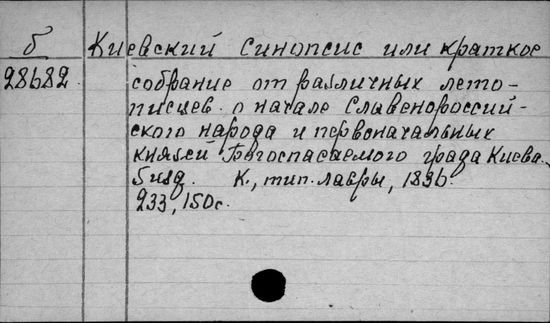 б Киевский синопсис или краткое
28682 собрание от различных лето-
писцев о начале Славенороссий-
ского народа и первоначальных
князей Богоспасаемого града Киева.
5 изд. К., тип. Лавры, 1836.
233, 150 с.